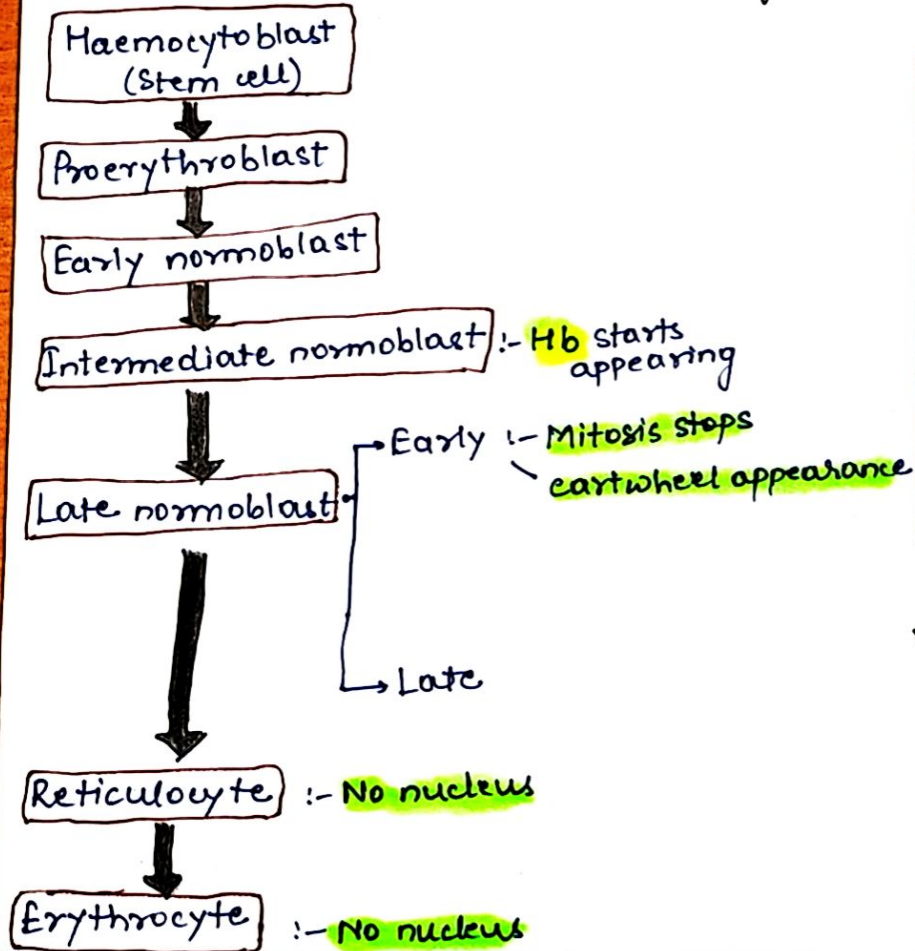 Haemocytoblast
(Stem cell)
Proerythroblast
Early normoblast
Intermediate normoblast :- Hb starts
appearing
Early :- Mitosis stops
cartwheel appearance
Late normoblast
Late
Reticulocyte :- No nucleus
Erythrocyte :- No nucleus